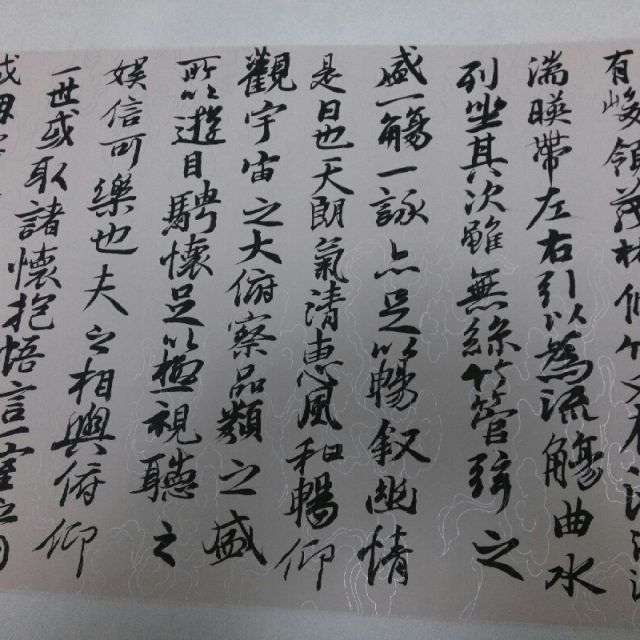 有峻領茂林修竹又有清流激
湍暎帶左右引以為流觴曲水
列坐其次雖無絲竹管弦之
盛一觴一詠亦足以暢叙幽情
是日也天朗氣清惠風和暢仰
觀宇宙之大俯察品類之盛
所以遊目騁懷足以極視聽之
娛信可樂也夫之相與俯仰
一世或取諸懷抱悟言一室之内